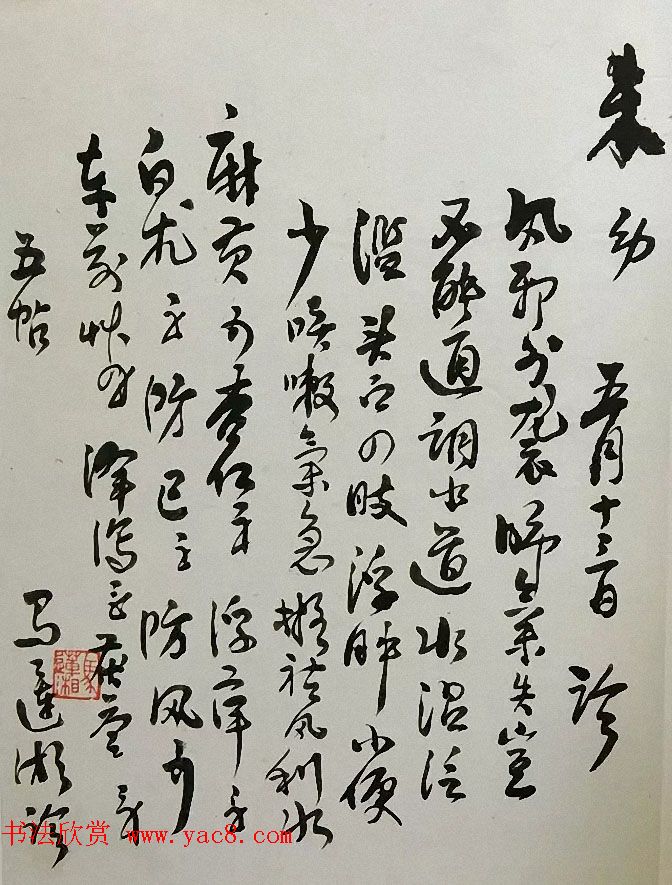 幼 五月十三日 诊
风邪外袭肺气失宣
不能通调水道水湿泛
滥头面四肢浮肿小便
少咳嗽气急拟祛风利水
麻黄 杏仁 浮萍
白朮 防己 防风
车前草 泽泻 茯苓
五帖
马莲湘诊
马莲湘
书法欣赏 www.yac8.com